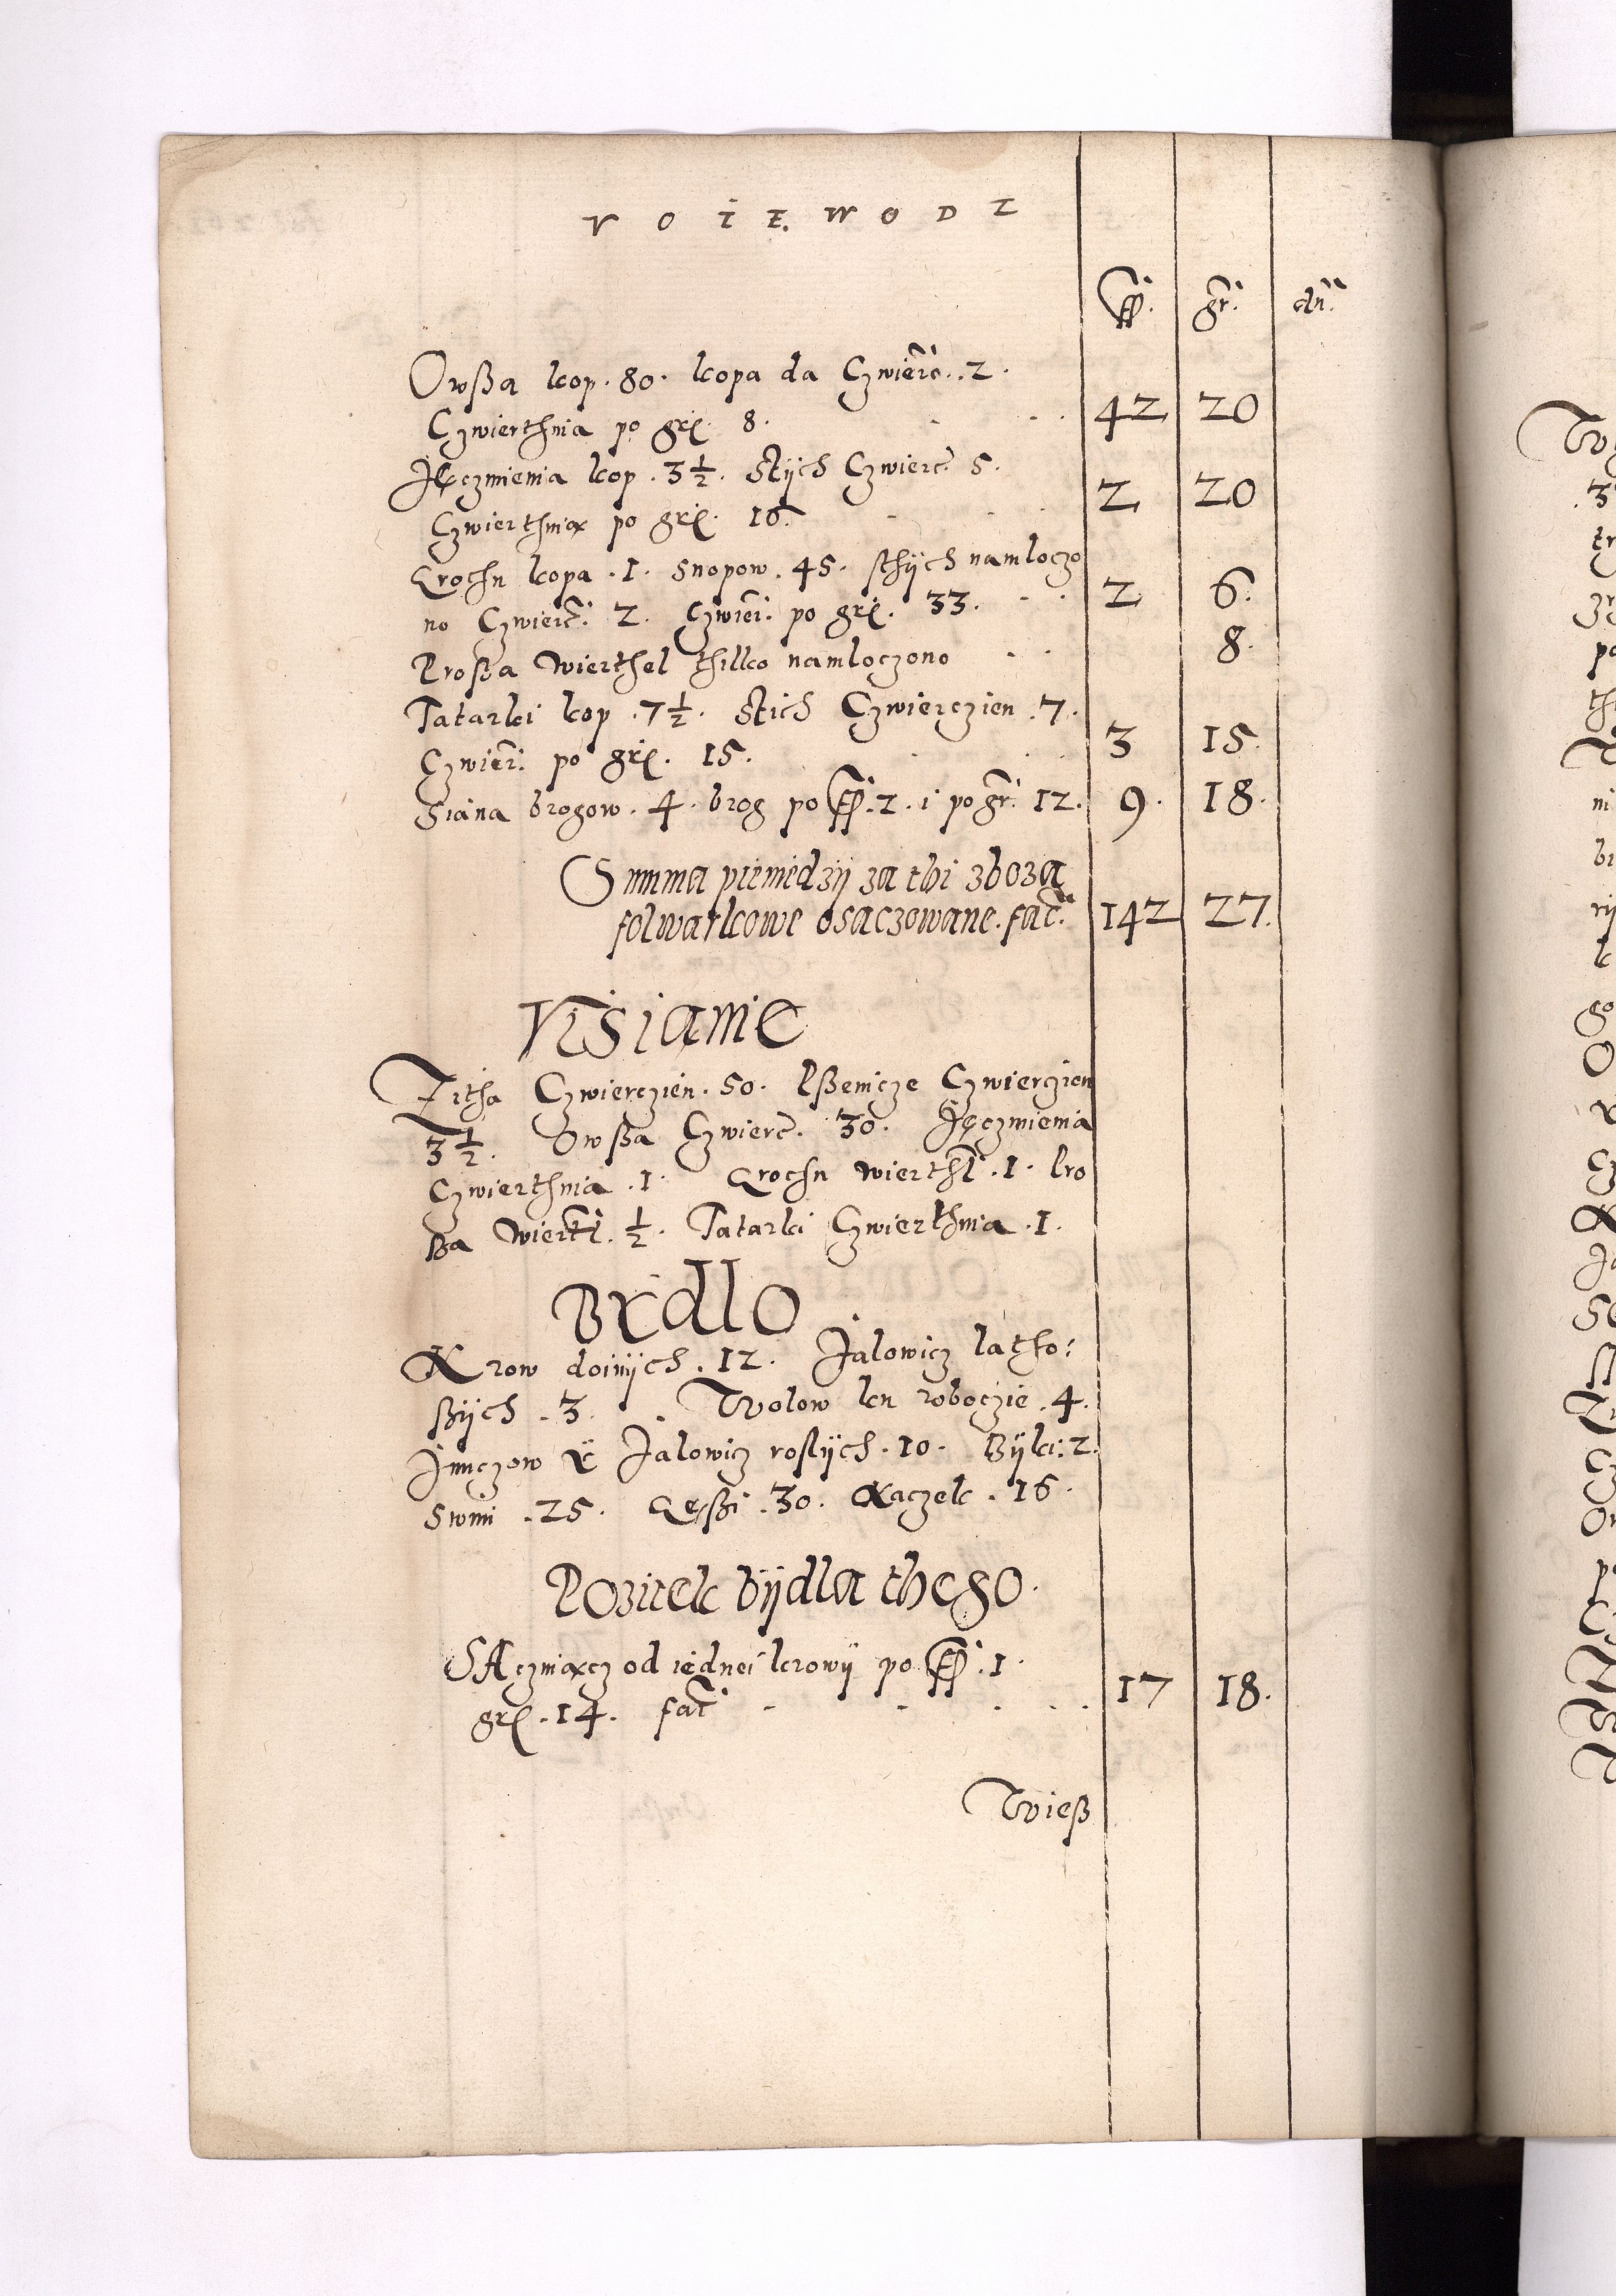 VOIEWODZ
fl. gr. dn.
Owßa kop. 80. kopa da Czwierc. 2.
Czwierthnia po grß. 8. 42 20
Jęczmienia kop. 3½. Stÿch Czwierc. 5.
Czwierthnia po grß. 16. 2 20
Grochu kopa .1. Snopow. 45. sthÿch namloczo
no Czwierc. 2. Czwier. po grß. 33. 2 6.
Proßa Wierthel thilko namloczono 8.
Tatarki kop .7½. Stich Czwierczien .7.
Czwier. po grß. 15. 3 15.
Siana brogow. 4. brog po fl. 2. i po gr. 12. 9. 18.
Summa pieniedzÿ za thi zboza
folwarkowe osaczowane. fac. 142 27.
Visianie
Zitha Czwierczien. 50. Pßenicze Czwierczien
3½. Owßa Czwierc. 30. Jęczmienia
Czwierthnia .1. Grochu wierthl .1. Pro
ßa Wiertl. ½. Tatarki Czwierthnia .1.
Bydlo
Krow doinÿch .12. Jalowicz latho:
ßÿch .3. Wolow ku roboczie .4.
Junczow y Jalowicz roslÿch .10. Bÿki: 2.
Swini .25. Gęßi .30. Kaczek .16.
Pozitek bÿdla thego.
SAczniącz od iednei krowÿ po fl. 1.
grß. 14. fac 17 18.
Wieß